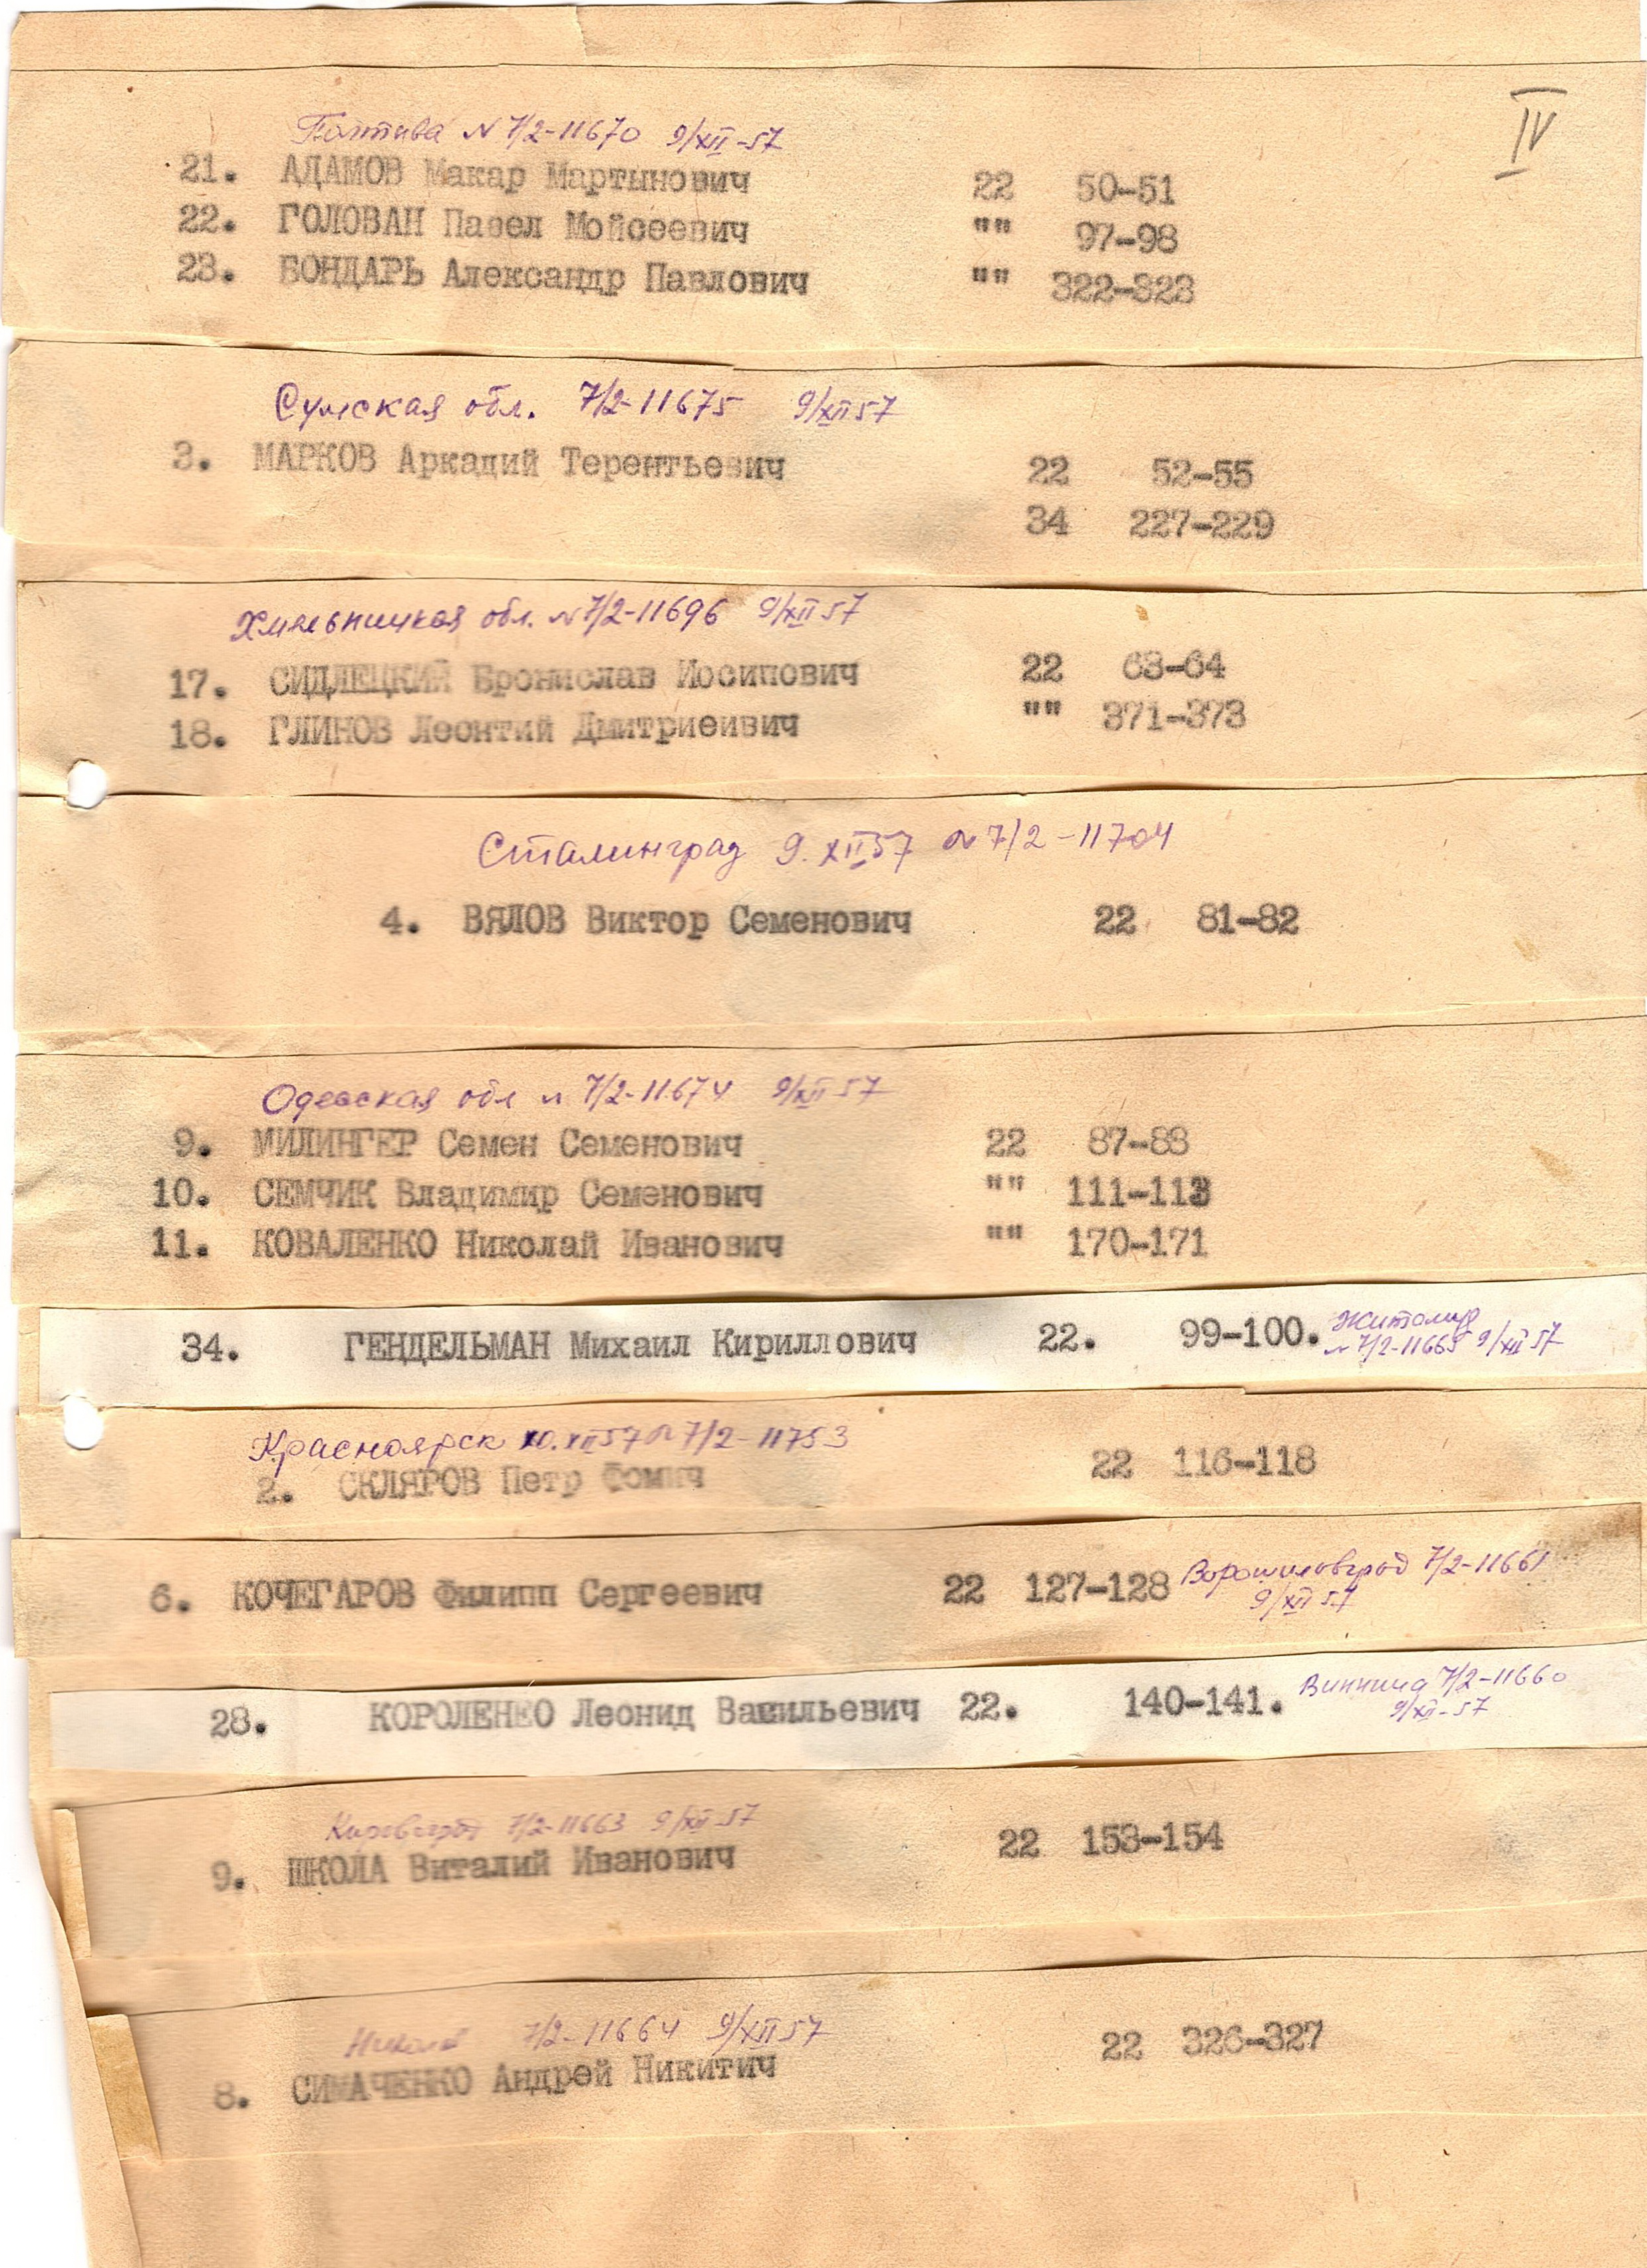 IV
Полтава N 7/2-11670 9/XII-57
21. АДАМОВ Макар Мартынович 22 50-51
22. ГОЛОВАН Павел Мойсеевич "" 97-98
23. БОНДАРЬ Александр Павлович "" 322-323
Сумская обл. 7/2-11675 9/XII 57
3. МАРКОВ Аркадий Терентьевич 22 52-55
34 227-229
Хмельницкая обл. N 7/2-11696 9/XII 57
17. СИДЛЕЦКИЙ Бронислав Иосипович 22 63-64
18. ГЛИНОВ Леонтий Дмитриеивич "" 371-373
Сталинград 9. XII 57 N 7/2-11704
4. ВЯЛОВ Виктор Семенович 22 81-82
Одесская обл N 7/2-11674 9/XII 57
9. МИЛИНГЕР Семен Семенович 22 87-88
10. СЕМЧИК Владимир Семенович "" 111-113
11. КОВАЛЕНКО Николай Иванович "" 170-171
34. ГЕНДЕЛЬМАН Михаил Кириллович 22. 99-100. Житомир
N 7/2-11665 9/XII 57
Красноярск 10.XII 57 N 7/2-11753
2. СКЛЯРОВ Петр Фомич 22 116-118
6. КОЧЕГАРОВ Филипп Сергеевич 22 127-128 Ворошиловград 7/2-11661
9/XII 57
28. КОРОЛЕНКО Леонид Васильевич 22. 140-141. Винница 7/2-11660
9/XII-57
Кировоград 7/2-11663 9/XII-57
9. ШКОЛА Виталий Иванович 22 153-154
7/2-11664 9/XII 57
8. СИМАЧЕНКО Андрей Никитич 22 326-327